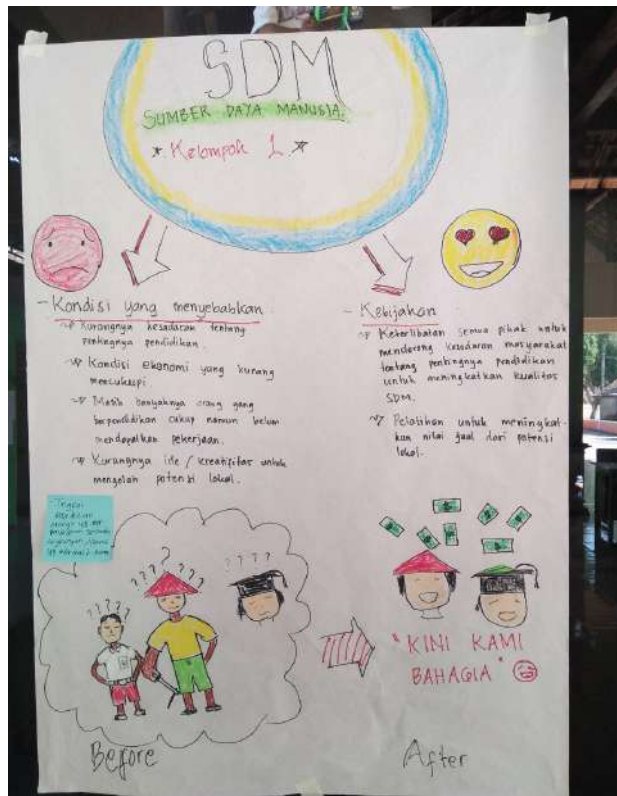 SDM
SUMBER DAYA MANUSIA
* Kelompok 1 *
- Kondisi yang menyebabkan
Kurangnya kesadaran tentang
pentingnya pendidikan.
Kondisi ekonomi yang kurang
mencukupi
Masih banyaknya orang yang
berpendidikan cukup namun belum
mendapatkan pekerjaan.
Kurangnya ide / kreatifitas untuk
mengolah potensi lokal.
- Kebijakan
Keterlibatan semua pihak untuk
mendorong kesadaran masyarakat
tentang pentingnya pendidikan
untuk meningkatkan kualitas
SDM.
Pelatihan untuk meningkat-
kan nilai jual dari potensi
lokal.
? ? ? ?
? ? ? ? ?
? ? ? ?
"KINI KAMI
BAHAGIA"
Before
After